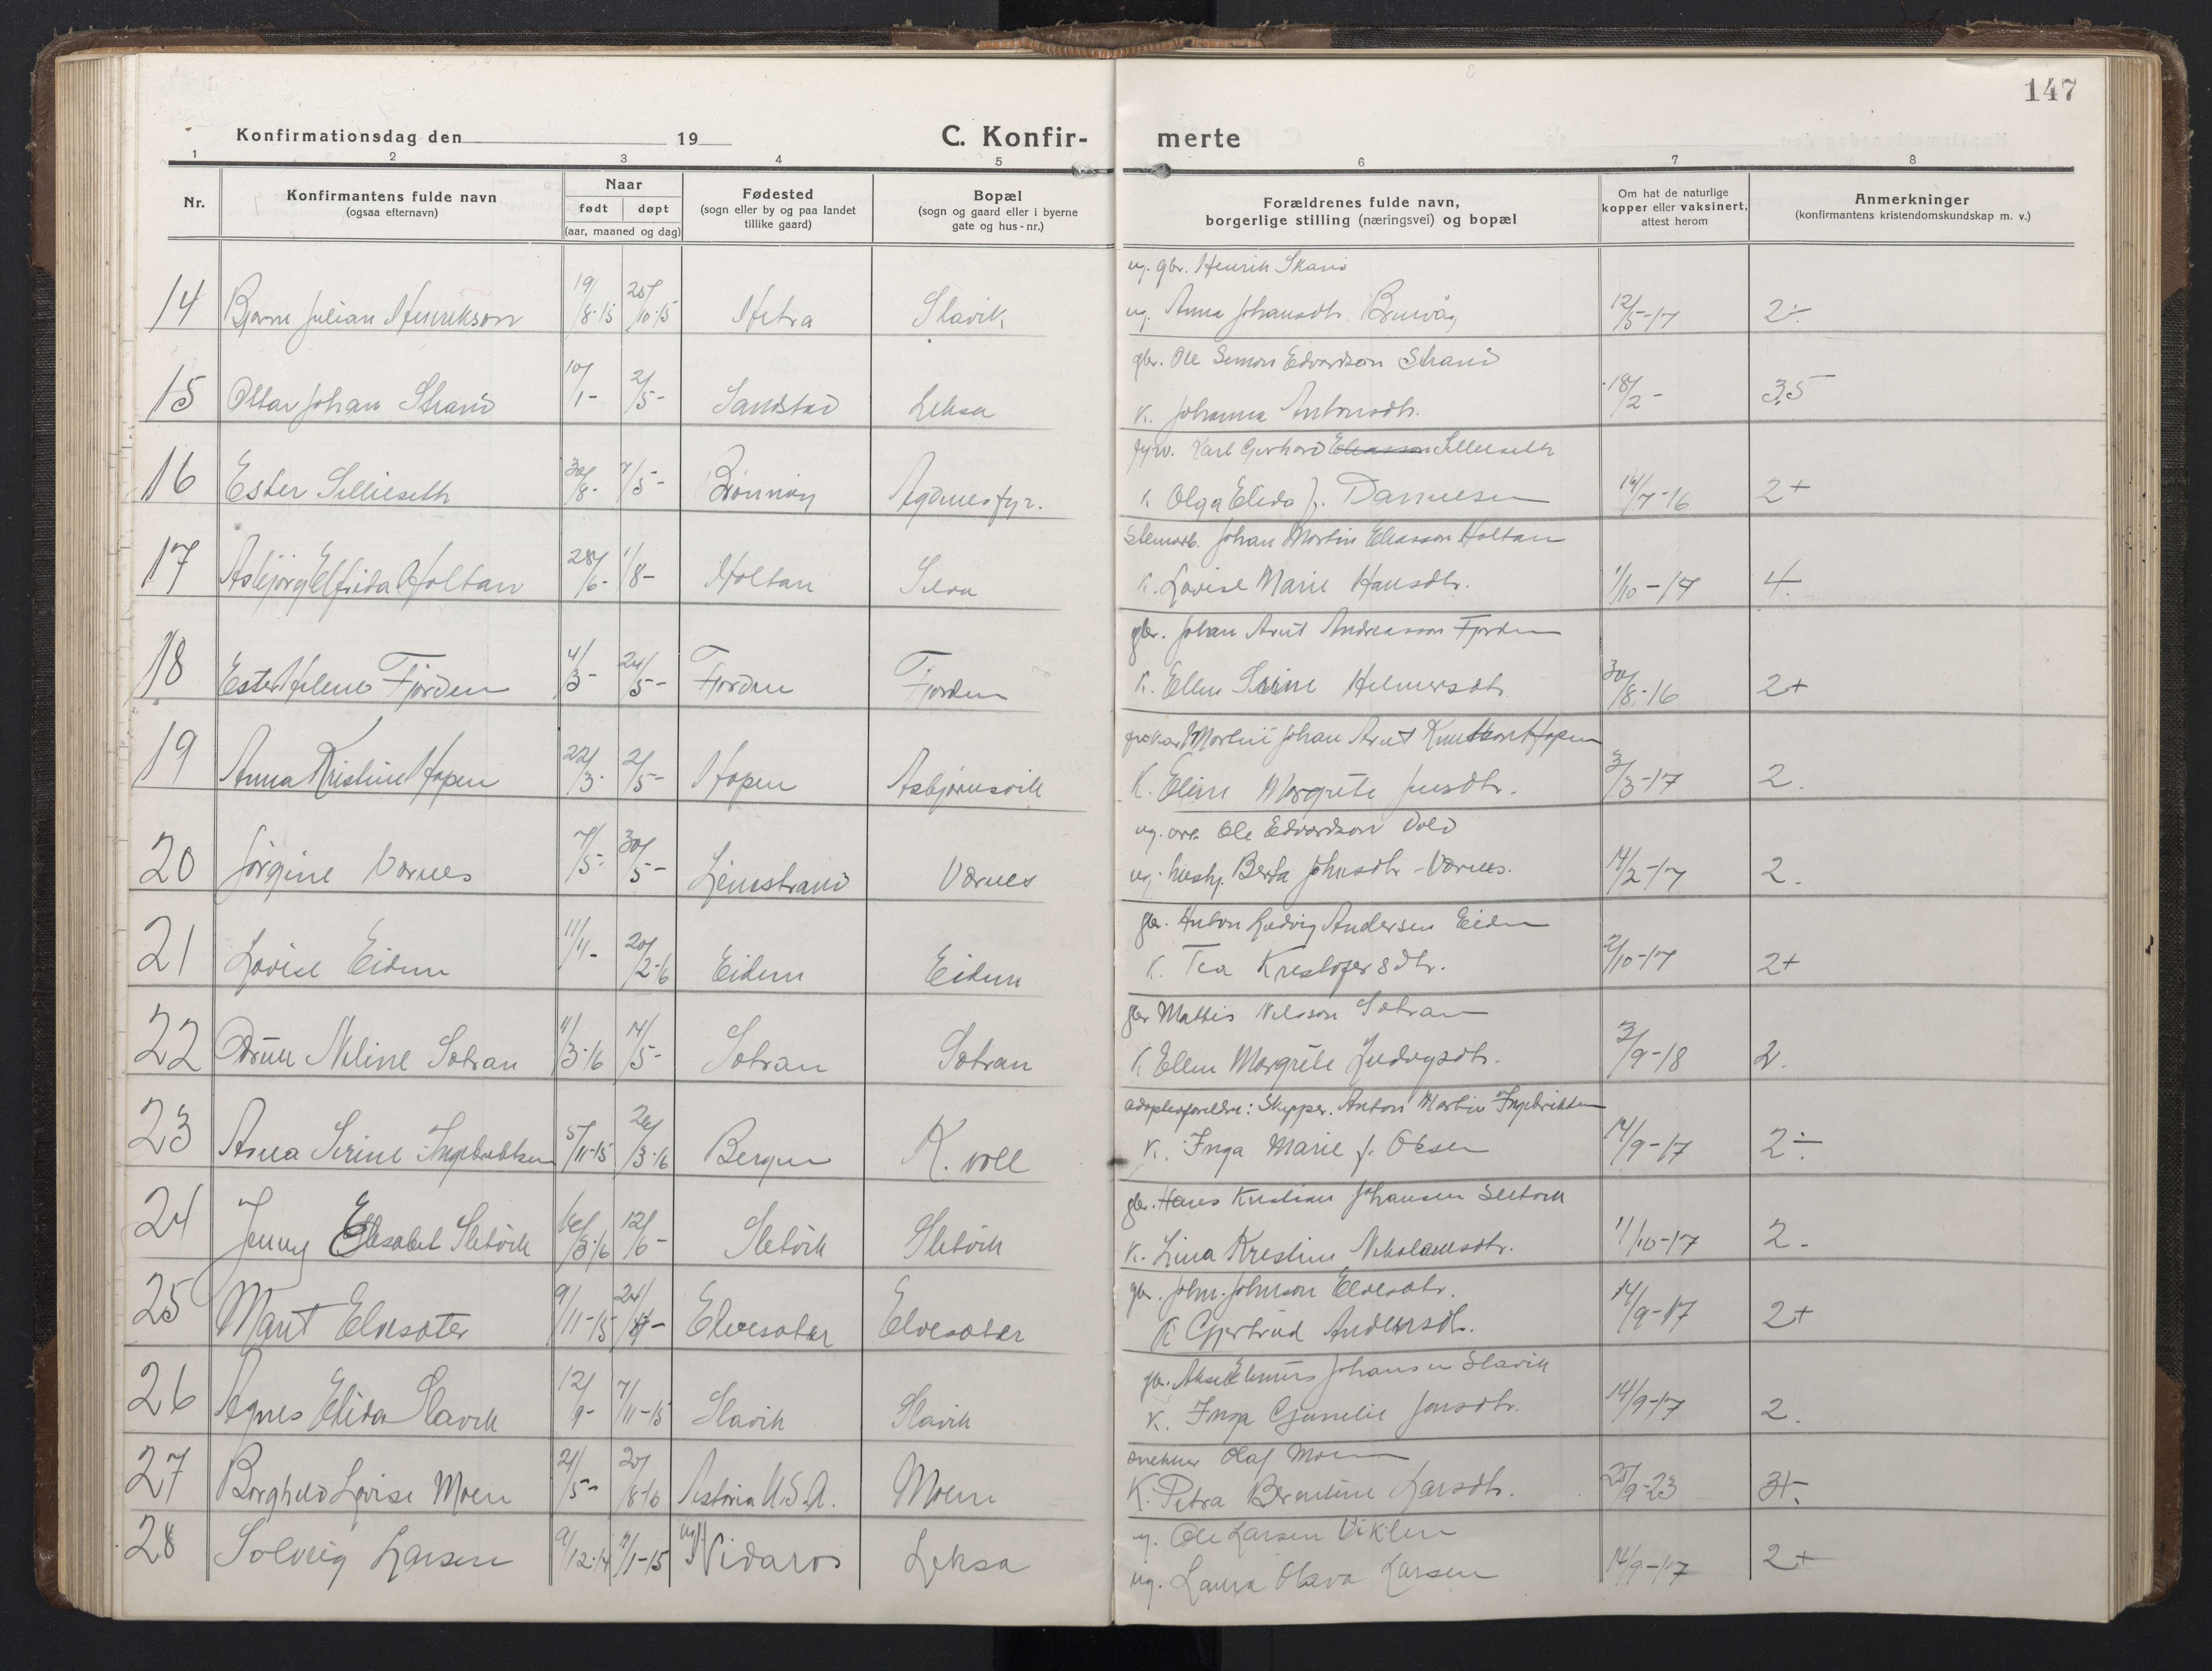 147
Konfirmationsdag den 19
C. Konfir-
merte
1 2 3 4 5 6 7 8
Nr.
Konfirmantens fulde navn
(ogsaa efternavn)
Naar
født døpt
(aar, maaned og dag)
Fødested
(sogn eller by og paa landet
tillike gaard)
Bopæl
(sogn og gaard eller i byerne
gate og hus-nr.)
Forældrenes fulde navn,
borgerlige stilling (næringsvei) og bopæl
Om hat de naturlige
kopper eller vaksinert,
attest herom
Anmerkninger
(konfirmantens kristendomskundskap m. v.)
ug. gbr. Henrik Skavø
14 Bjarne Julian Henrikson 19/8-15 25/10-15 Hitra Slavik ug. Anna Johansdtr. 12/5-17 2÷
gbr. Ole Simon Edvardson Strand
15 Ottar Johan Strand 10/1- 2/5- Sandstad Leksa K. Johanna Antonsdtr. 18/2- 3.5
fyrv. Karl Gerhard Eliasson Sellieseth
16 Ester Sellieseth 30/8- 7/5- Brønnøy Agdenes fyr. K. Olga Elida f. Danielsen 14/7-16 2+
Stenarb. Johan Martin Eliasson Holtan
17 Asbjørg Elfrida Holtan 28/6- 1/8- Holtan Selva K. Lovise Marie Hansdtr. 1/10-17 4.
gbr. Johan Arnt Andreasson Fjorden
18 Ester Helene Fjorden 4/3- 24/5- Fjorden Fjorden K. Ellen Serine Helmersdtr. 30/8-16 2+
Martin Johan Arnt Knutson Hopen
19 Anna Kristine Hopen 22/3- 2/5- Hopen Asbjørnsvik K. Eline Margrete Jensdtr. 3/3-17 2.
ug. arb. Ole Edvardson Vold
20 JørgineVærnes 7/5- 30/5- Lensstrand Værnes ug. hushj. Berta Johnsdtr. Værnes. 14/2-17 2.
gbr. Anton Ludvig Andersen Eidem
21 Lovise Eidem 11/11- 20/2-16 Eidem Eidem K. Tea Kristofersdtr. 2/10-17 2+
gbr Mattis Nilsson Sotran
22 Neline Sotran 11/3-16 14/5- Sotran Sotran K Ellen Margrete Ludvigsdtr. 3/9-18 2.
Adoptivforeldre: Skipper. Anton Martin Ingebriktsen
23 Asna Serine Ingebriktsen 5/11-15 26/3-16 Bergen K. voll K. Inga Marie f. Olsen 14/9-17 2÷
gbr. Hans Kristian Johansen Sletvik
24 Jenny Elisabet Sletvik 16/3-16 12/6- Sletvik Sletvik K. Lina Kristine Nikolaisdtr. 1/10-17 2.
gbr. John Johnson Elvesæter.
25 Marit Elvesæter 9/11-15 24/ Elvesæter Elvesæter K Gjertrud Andersdtr. 14/9-17 2+
gbr. Aksel Elenius Johansen Slavik
26 Agnes Elida Slavik 12/9- 7/11-15 Slavik Slavik K. Inga Gjunelie Jonsdtr. 14/9-17 2.
snekker Olaf Moen
27 Borghild Lovise Moen 21/5- 20/8-16 Astoria U.S.A. Moen K. Petra Berntine Larsdtr. 25/9-23 3+.
ug. Ole Larsen Viklem
28 Solveig Larsen 9/12-14 7/1-15 Nidaros Leksa ug. Laura Olava Larsen 14/9-17 2+